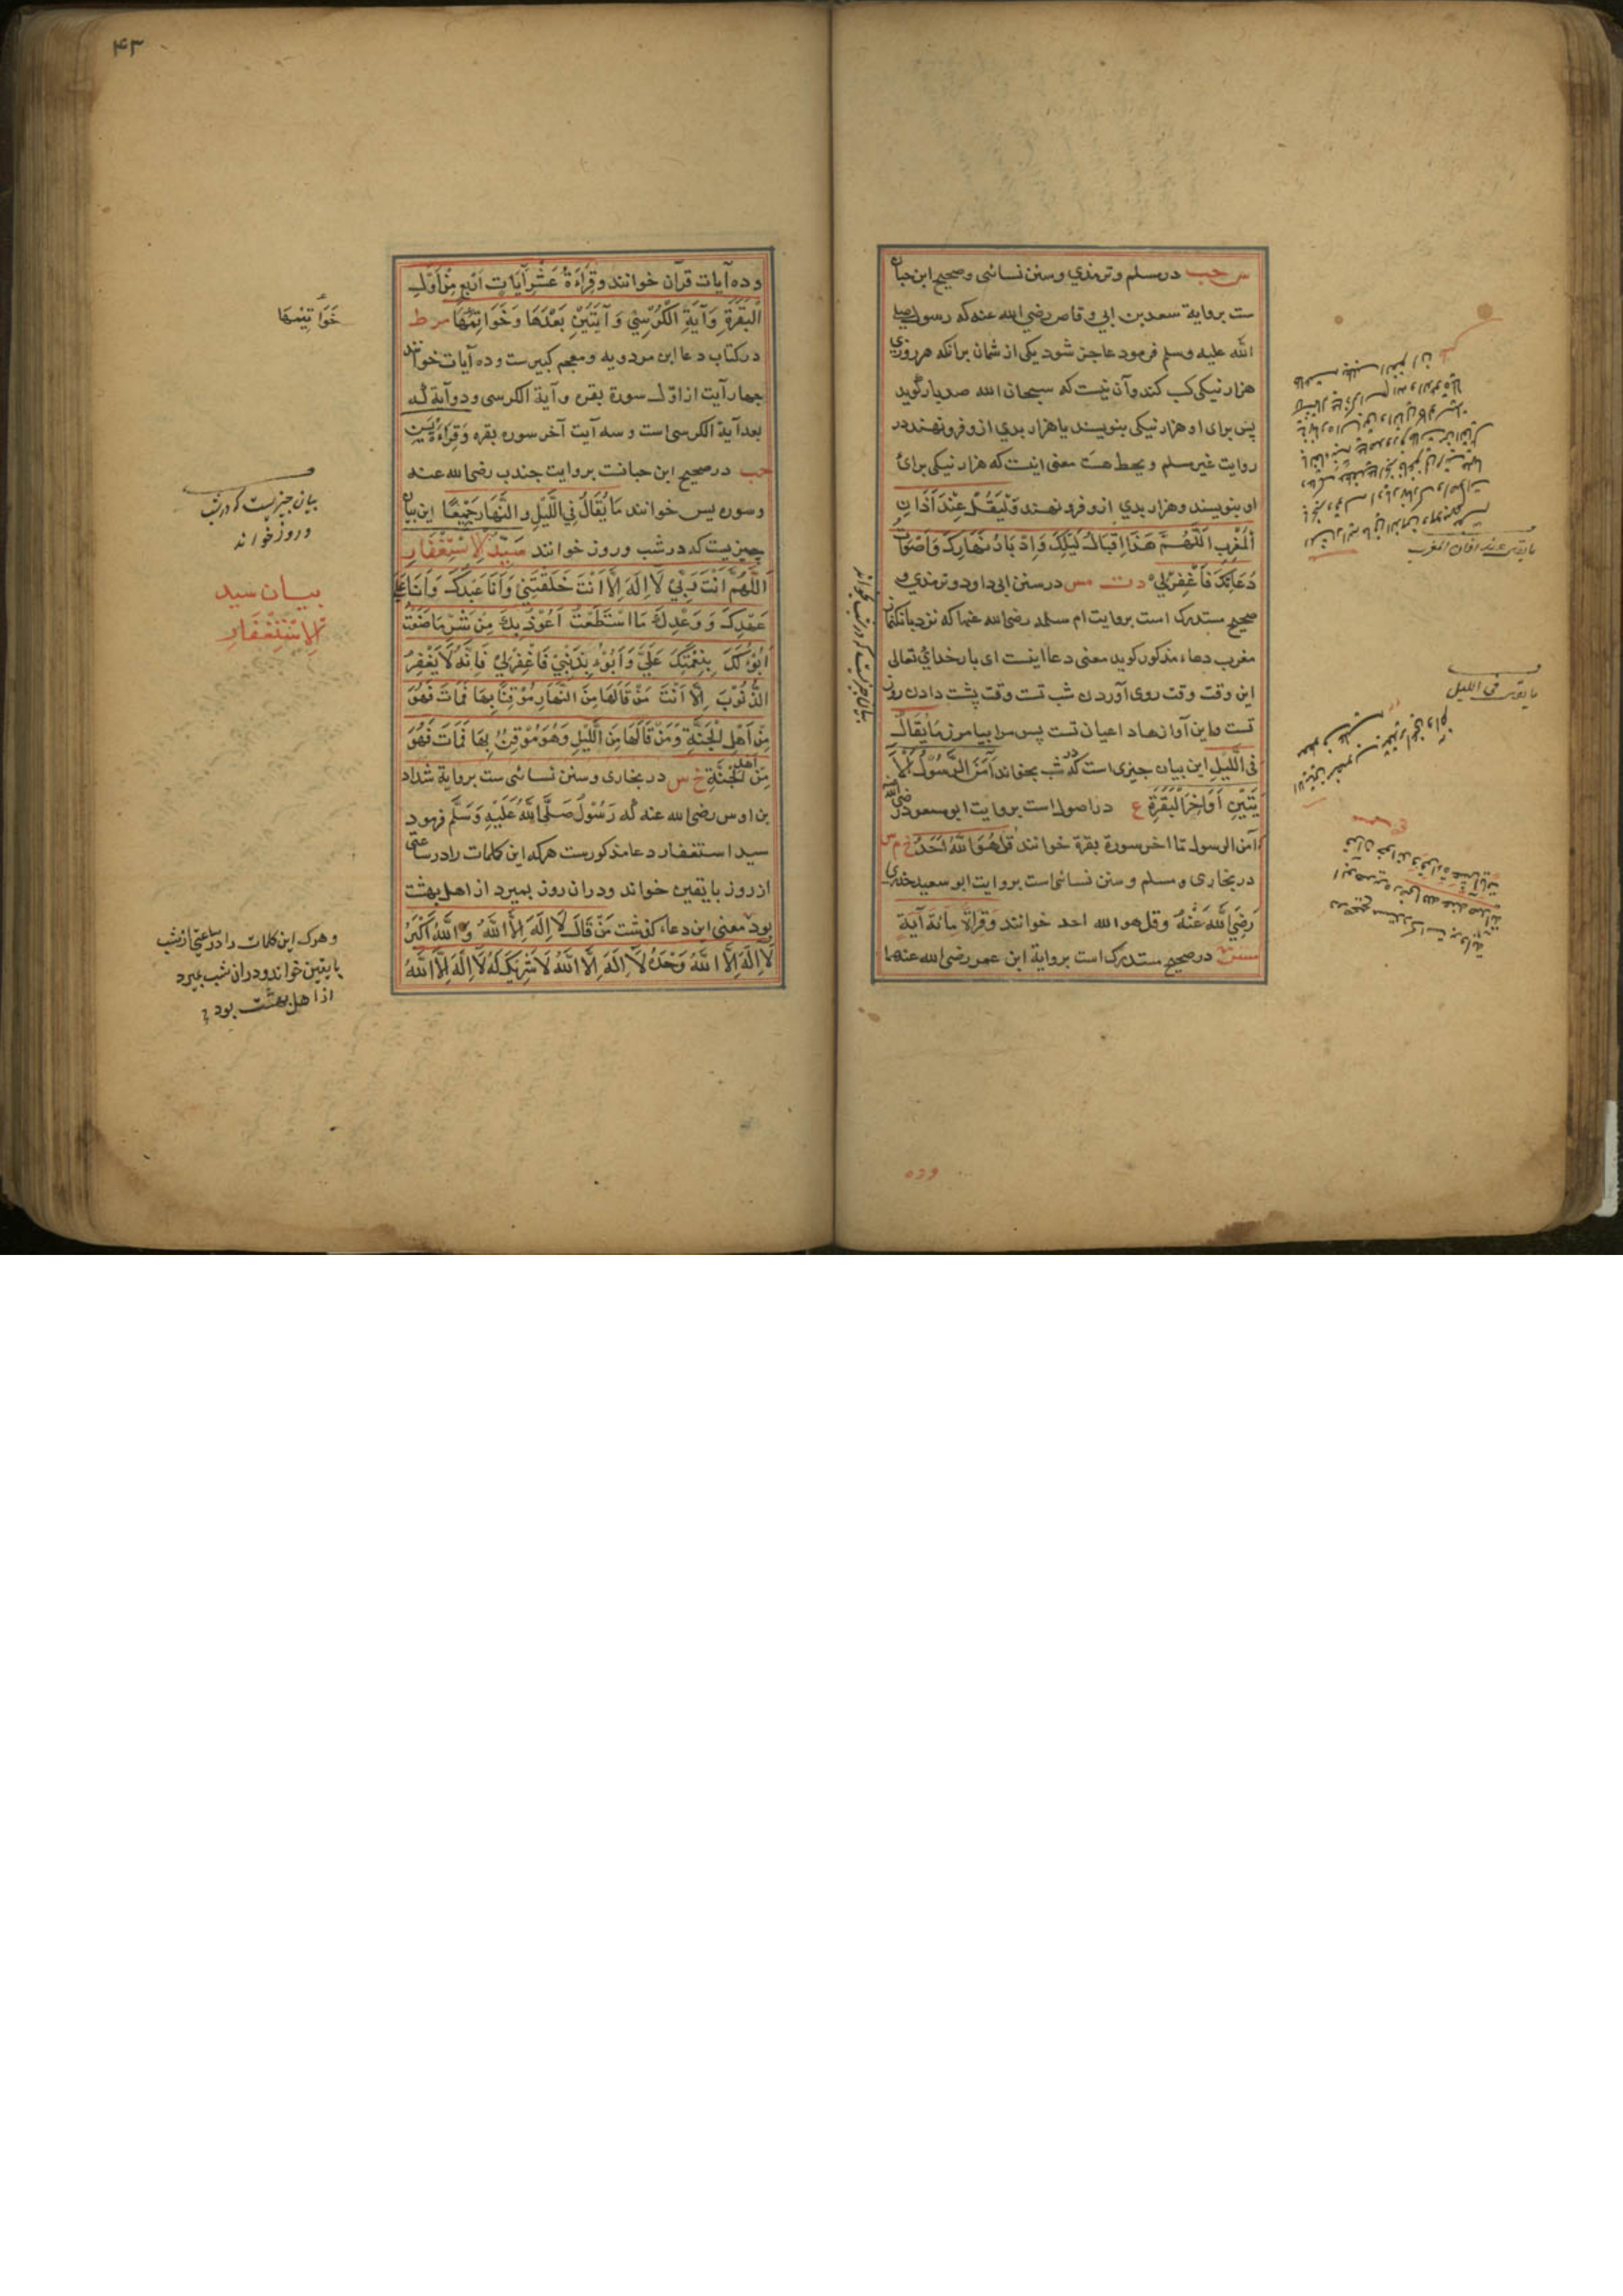 س حب در مسلم وترمذي وسنن نسائی وصحیح ابن حبان
ست بروایة سعد بن ابي وقاص رضي الله عنه که رسول صلی
الله علیه وسلم فرمود عاجز شود یکی از شمان برانکه هر روزی
هزار نیکی کسب کند وآن نیست که سبحان الله صد بار گوید
پس برای او هزار نیکی بنویسند یا هزار بدي ازو فرو نهند در
روایت غیر مسلم ویحط هست معنی اینست که هزار نیکی برای
او بنویسند وهزار بدي ازو فرو نهند وَلْيَقُلْ عِنْدَ اَذَانِ
الْمَغْرِبِ اَللّٰهُمَّ هَذَا اِقْبَالُ لَيْلِكَ وَاِدْبَارُ نَهَارِكَ وَاَصْوَاتُ
دُعَاتِكَ فَاغْفِرْلِيْ د ت مس در سنن ابی داود وترمذي و
صحیح مستدرک است بروایت ام سلمه رضی الله عنها که نزد بانک نماز
مغرب دعاء مذکور کوید معنی دعا اینست ای بار خدای تعالی
این وقت وقت روی آوردن شب تست وقت پشت دادن روز
تست واین آوازهاء داعیان تست پس مرا بیامرز مَا يُقَالُ
فِي الَّيْلِ این بیان چیزی است که در شب بخواند آمَنَ الرَّسُوْلُ اَلْآ
يَتَيْنِ اَوَاخِرَ الْبَقَرَةِ ع در اصول است بروایت ابو مسعود رضی الله
آمن الرسول تا اخر سورة بقرة خوانند قُلْ هُوَ اللّٰهُ اَحَدٌ خ م س
در بخاری ومسلم وسنن نسائی است بروایت ابو سعید خدری
رَضِيَ اللّٰهُ عَنْهُ وقل هو الله احد خوانند وَقِرَاةُ مِائَةَ آيَةٍ
مس در صحیح مستدرک است بروایة ابن عمر رضی الله عنهما
ما یقول عند اذان المغرب
ما یقول فی اللیل
بیان چیزیست که در شب بخواند
وده
۴۳
وده آیات قرآن خوانند وَقِرَاءَةُ عَشْرِ آيَاتٍ اَرْبَعٍ مِنْ اَوَّلِ
الْبَقَرَةِ وَآيَةِ الْكُرْسِيِّ وَآيَتَيْنِ بَعْدَهَا وَخَوَاتِمُهَا مر ط
در کتاب دعا ابن مردویه ومعجم کبیرست وده آیات خوانند
چهار آیت از اوّل سورة بقره وآیة الکرسی ودو آیة که
بعد آیة الکرسی است وسه آیت آخر سوره بقره وَقِرَاءَةُ يٰسٓ
حب در صحیح ابن حبانت بروایت جندب رضی الله عنه
وسوره یس خوانند مَا يُقَالُ فِي الَّيْلِ وَالنَّهَارِ جَمِيْعًا این بیان
چیزیست که در شب وروز خوانند سَيِّدُ الْاِسْتِغْفَارِ
اَللّٰهُمَّ اَنْتَ رَبِّيْ لَا اِلٰهَ اِلَّا اَنْتَ خَلَقْتَنِيْ وَاَنَا عَبْدُكَ وَاَنَا عَلٰى
عَهْدِكَ وَوَعْدِكَ مَا اسْتَطَعْتُ اَعُوْذُ بِكَ مِنْ شَرِّ مَا صَنَعْتُ
اَبُوْءُ لَكَ بِنِعْمَتِكَ عَلَيَّ وَاَبُوْءُ بِذَنْبِيْ فَاغْفِرْلِيْ فَاِنَّهُ لَا يَغْفِرُ
الذُّنُوْبَ اِلَّا اَنْتَ مَنْ قَالَهَا مِنَ النَّهَارِ مُوْقِنًا بِهَا فَمَاتَ فَهُوَ
مِنْ اَهْلِ الْجَنَّةِ وَمَنْ قَالَهَا مِنَ الَّيْلِ وَهُوَ مُوْقِنٌ بِهَا فَمَاتَ فَهُوَ
مِنْ اَهْلِ الْجَنَّةِ خ س در بخاری وسنن نسائی ست بروایة شداد
بن اوس رضی الله عنه که رَسُوْلُ صَلَّى اللّٰهُ عَلَيْهِ وَسَلَّمَ فرمود
سید استغفار دعا مذکورست هرکه این کلمات را در ساعتی
از روز با یقین خواند ودران روز بمیرد از اهل بهشت
بود معنی این دعاء کذشت مَنْ قَالَ لَا اِلٰهَ اِلَّا اللّٰهُ وَاللّٰهُ اَكْبَرُ
لَا اِلٰهَ اِلَّا اللّٰهُ وَحْدَهُ لَا اِلٰهَ اِلَّا اللّٰهُ لَا شَرِيْكَ لَهُ لَا اِلٰهَ اِلَّا اللّٰهُ
خَوَاتِيْمِهَا
بیان چیزیست که در شب
وروز خواند
بیان سید
الْاِسْتِغْفَارِ
وهرکه این کلمات را در ساعتی از شب
با یقین خواند ودران شب بمیرد
از اهل بهشت بود